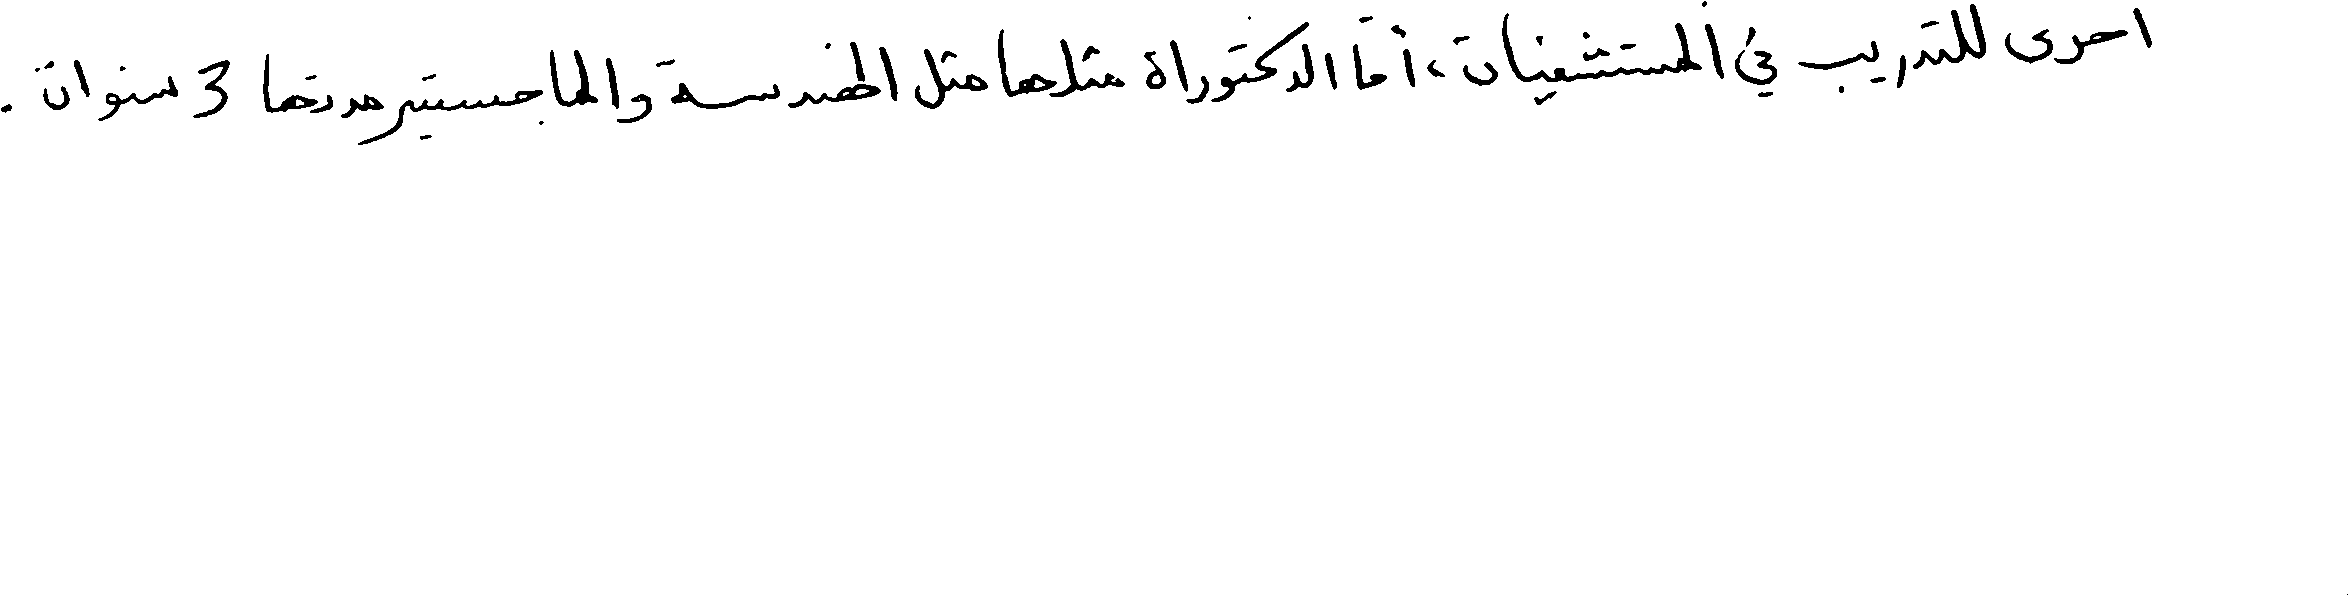 احرى للتدريب في المستشفيات، أما الدكتوراة مثلها مثل الهندسة والماجستير مدتها 3 سنوات.